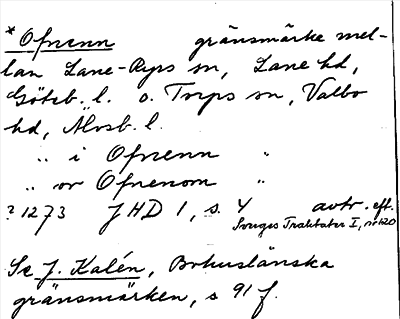 * Ofrenn gränsmärke mel-
lan Lane-Ryrs sn, Lane hd,
Göteb. l. o. Torps sn, Valbo
hd, Älvsb. l.
„ i Ofrenn „
„ or Ofrenom „
? 1273 JHD 1, s. 4 avtr. eft.
Sveriges Traktater I, nr 120
Se J. Kalén, Bohuslänska
gränsmärken, s 91 f.